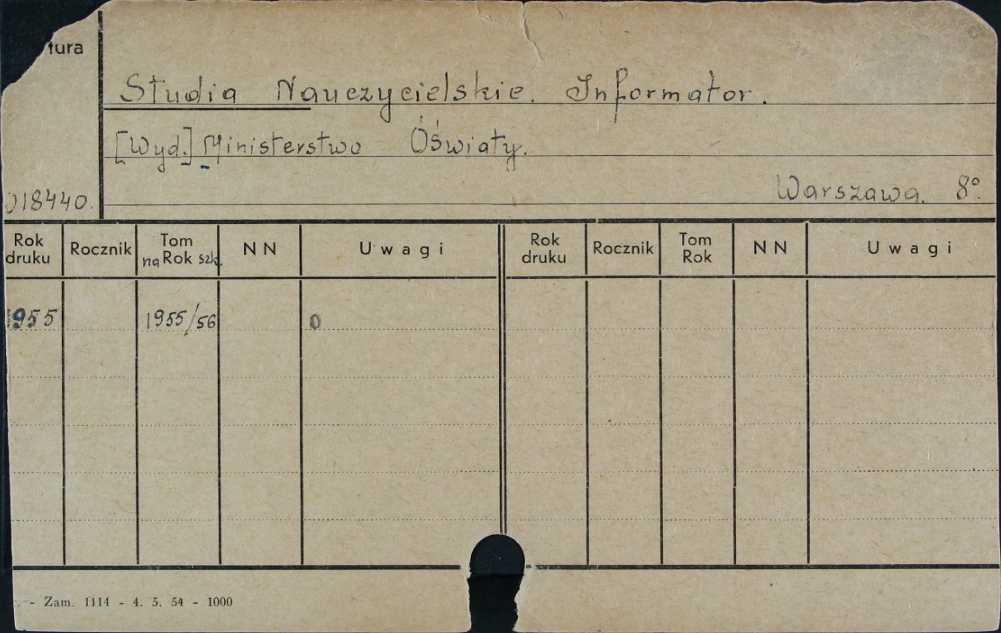 tura
Studia Nauczycielskie. Informator.
[Wyd.] Ministerstwo Oświaty.
Warszawa. 8°.
018440.
Rok druku Rocznik Tom na Rok szk. NN Uwagi Rok druku Rocznik Tom Rok NN Uwagi
1955 1955/56 0
- Zam. 1114 - 4. 5. 54 - 1000